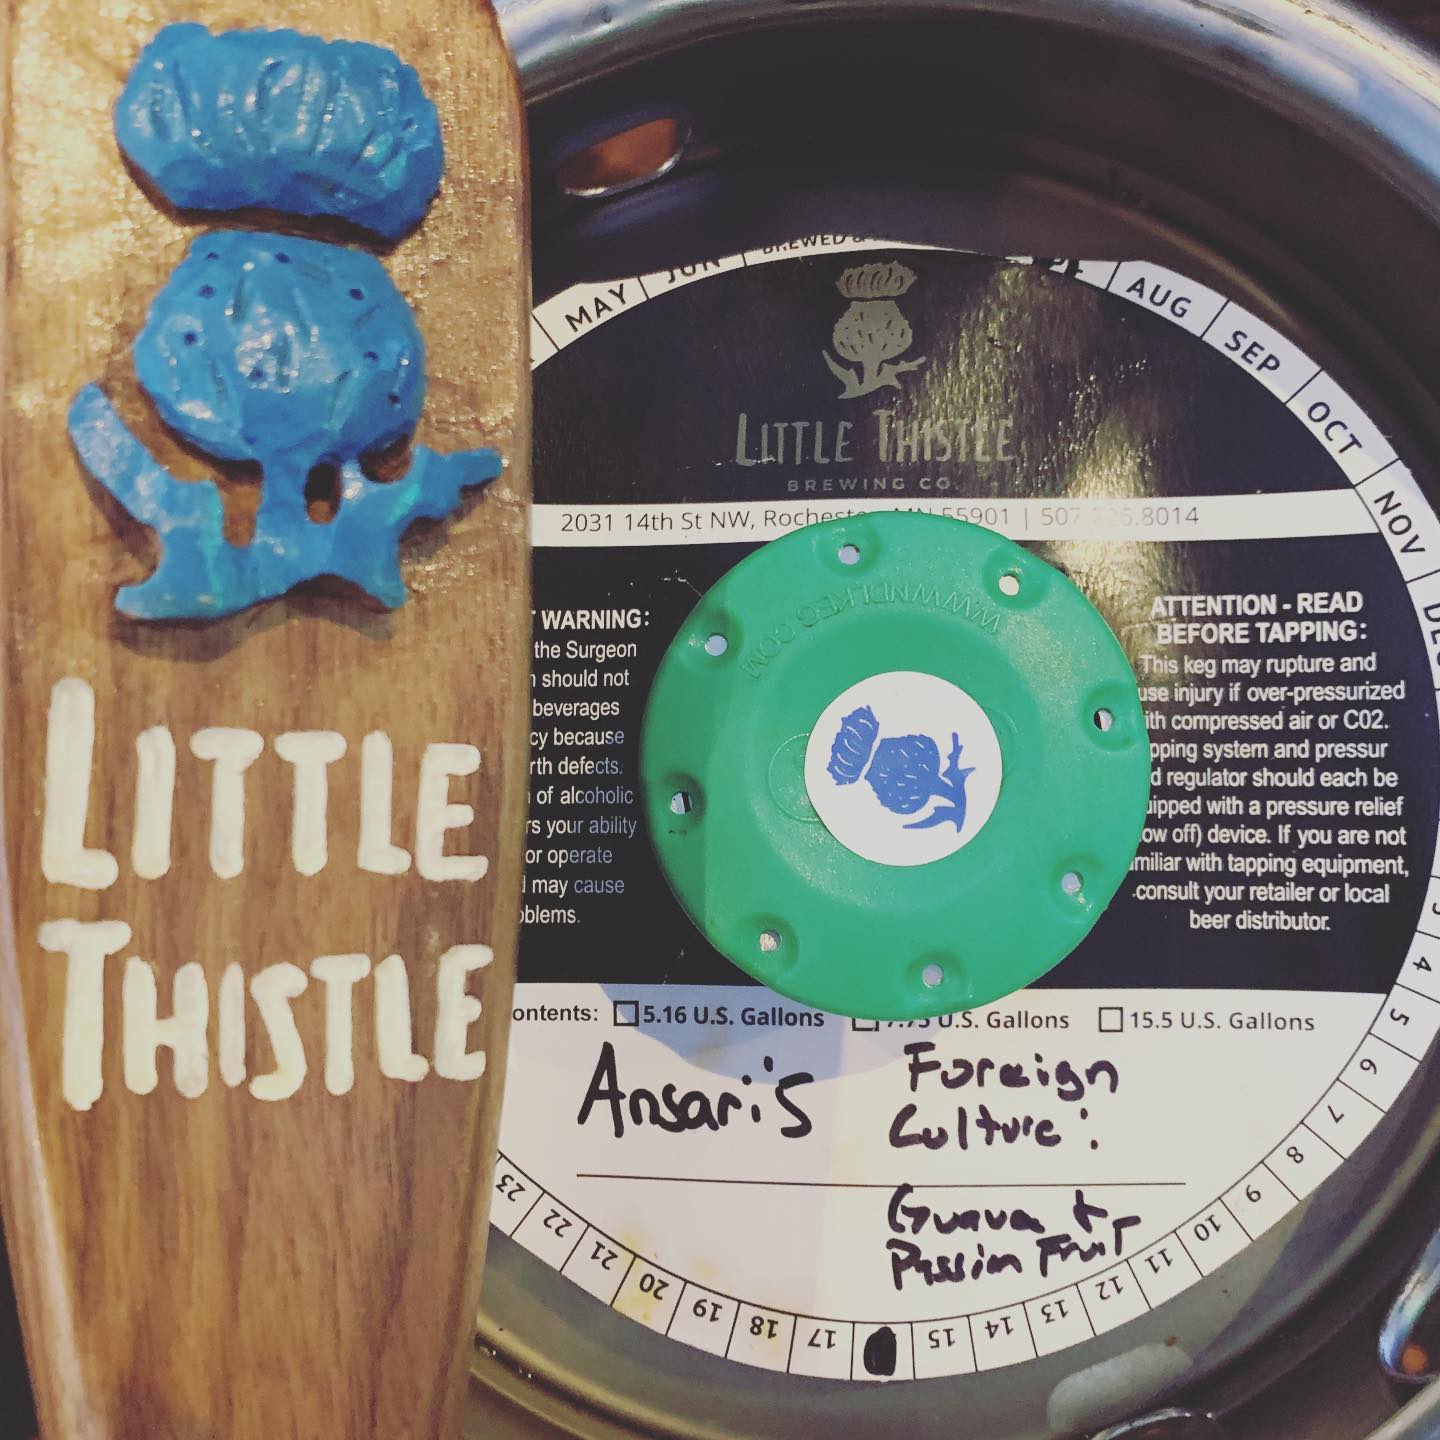 LITTLE
THISTLE
BREWED &
MAY
JUN
AUG
SEP
OCT
NOV
LITTLE THISTLE
BREWING CO.
2031 14th St NW, MN 55901 | 507 8014
WARNING:
the Surgeon
should not
beverages
because
defects.
of alcoholic
your ability
or operate
may cause
WWW.NDLKEG.COM
ATTENTION - READ
BEFORE TAPPING:
This keg may rupture and
injury if over-pressurized
compressed air or C02.
system and pressur
regulator should each be
with a pressure relief
off) device. If you are not
with tapping equipment,
consult your retailer or local
beer distributor.
5.16 U.S. Gallons 7.75 U.S. Gallons 15.5 U.S. Gallons
Ansari's
Foreign
Culture:
Guava +
Passion Fruit
4
5
6
7
8
9
10
11
12
13
14
15
17
18
19
20
21
22
23